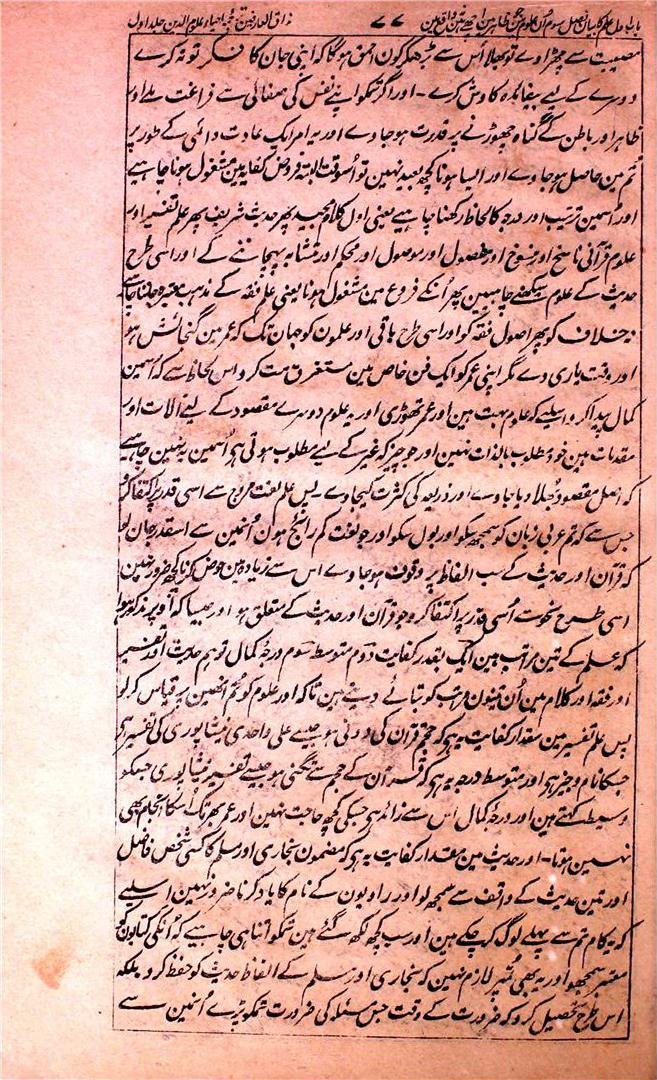 باب اول علم کا بیان فصل سوم ان علوم مین جن کو ظاہر مین اچھے نہین واقع مین ۷۷ مذاق العارفین ترجمہ احیاء علوم الدین جلد اول
مصیبت سے چھڑاوے تو بھلا اُس سے بڑھکر کون احمق ہوگا کہ اپنی جان کا فکر تو نہ کرے
دوسرے کے لیے بیفائدہ کاوش کرے - اور اگر تمکو اپنے نفس کی صفائی سے فراغت ملے اور
ظاہر اور باطن کے گناہ چھوڑنے پر قدرت ہو جاوے اور یہ امر ایک عادت دائمی کے طور پر
تم مین حاصل ہو جاوے اور ایسا ہونا کچھ بعید نہین تو اُسوقت البتہ فروض کفایہ مین مشغول ہونا چاہیے
اور اُسمین ترتیب اور درجہ کا لحاظ رکھنا چاہیے یعنی اول کلام مجید پھر حدیث شریف پھر علم تفسیر اور
علوم قرآنی ناسخ اور منسوخ اور مفصول اور موصول اور محکم اور متشابہ پہچاننے کے اور اسی طرح
حدیث کے علوم سیکھنے چاہیین پھر اُنکے فروع مین مشغول ہونا یعنی علم فقہ کے مذہب معتبرہ جاننا چاہیے
نہ خلاف کو پھر اصول فقہ کو اور اسی طرح باقی اور علمون کو جہان تک کہ عمر مین گنجائش ہو
اور وقت یاری دے مگر اپنی عمر کو ایک فن خاص مین مستغرق مت کرو اس لحاظ سے کہ اُسمین
کمال پیدا کرو اسلیے کہ علوم بہت ہین اور عمر تھوڑی اور یہ علوم دوسرے مقصود کے لیے آلات اور
مقدمات ہین خود مطلب بالذات نہین اور جو چیز کہ غیر کے لیے مطلوب ہوتی ہی اُسمین یہ نہین چاہیے
کہ اصل مقصود بھلا دیا جاوے اور ذریعہ کی کثرت کیجاوے - پس علم لغت مروج سے اسی قدر پر اکتفا کرو
جس سے کہ تم عربی زبان کو سمجھ سکو اور بول سکو اور جو لغت کم رائج ہون اُنمین سے اسقدر جان لو
کہ قرآن اور حدیث کے سب الفاظ پر وقوف ہو جاوے اس سے زیادہ مین خوض کرنا کچھ ضرور نہین
اسی طرح نحو سے اُسی قدر پر اکتفا کرو جو قرآن اور حدیث کے متعلق ہو اور جیسا کہ اوپر مذکور ہوا
کہ علم کے تین مراتب ہین ایک بقدر کفایت دوم متوسط سوم درجہ کمال تو ہم حدیث اور تفسیر
اور فقہ اور کلام مین اُن تینون مراتب کو بتائے دیتے ہین تاکہ اور علوم کو تم انھین پر قیاس کر لو
پس علم تفسیر مین مقدار کفایت یہ ہی کہ حجم قرآن کی دونی ہو جیسے علی واحدی نیشاپوری کی تفسیر ہی
جسکا نام وجیز ہی اور متوسط درجہ یہ ہی کہ قرآن کے حجم سے تگنی ہو جیسے تفسیر نیشاپوری جسکو
وسیط کہتے ہین اور درجہ کمال اس سے زائد ہی جسکی کچھ حاجت نہین اور عمر بھر تک اُسکا انجام بھی
نہین ہوتا - اور حدیث مین مقدار کفایت یہ ہی کہ مضمون بخاری اور مسلم کا کسی شخص فاضل
اور متن حدیث کے واقف سے سمجھ لو اور راویون کے نام کا یاد کرنا ضرور نہین اسلیے
کہ یہ کام تم سے پہلے لوگ کر چکے ہین اور سب کچھ لکھ گئے ہین تمکو اتنا ہی چاہیے کہ اُنکی کتابون کو
معتبر سمجھو اور یہ بھی تمپر لازم نہین کہ بخاری اور مسلم کے الفاظ حدیث کو حفظ کرو بلکہ
اس طرح تحصیل کرو کہ ضرورت کے وقت جس مسئلہ کی ضرورت تمکو پڑے اُنمین سے